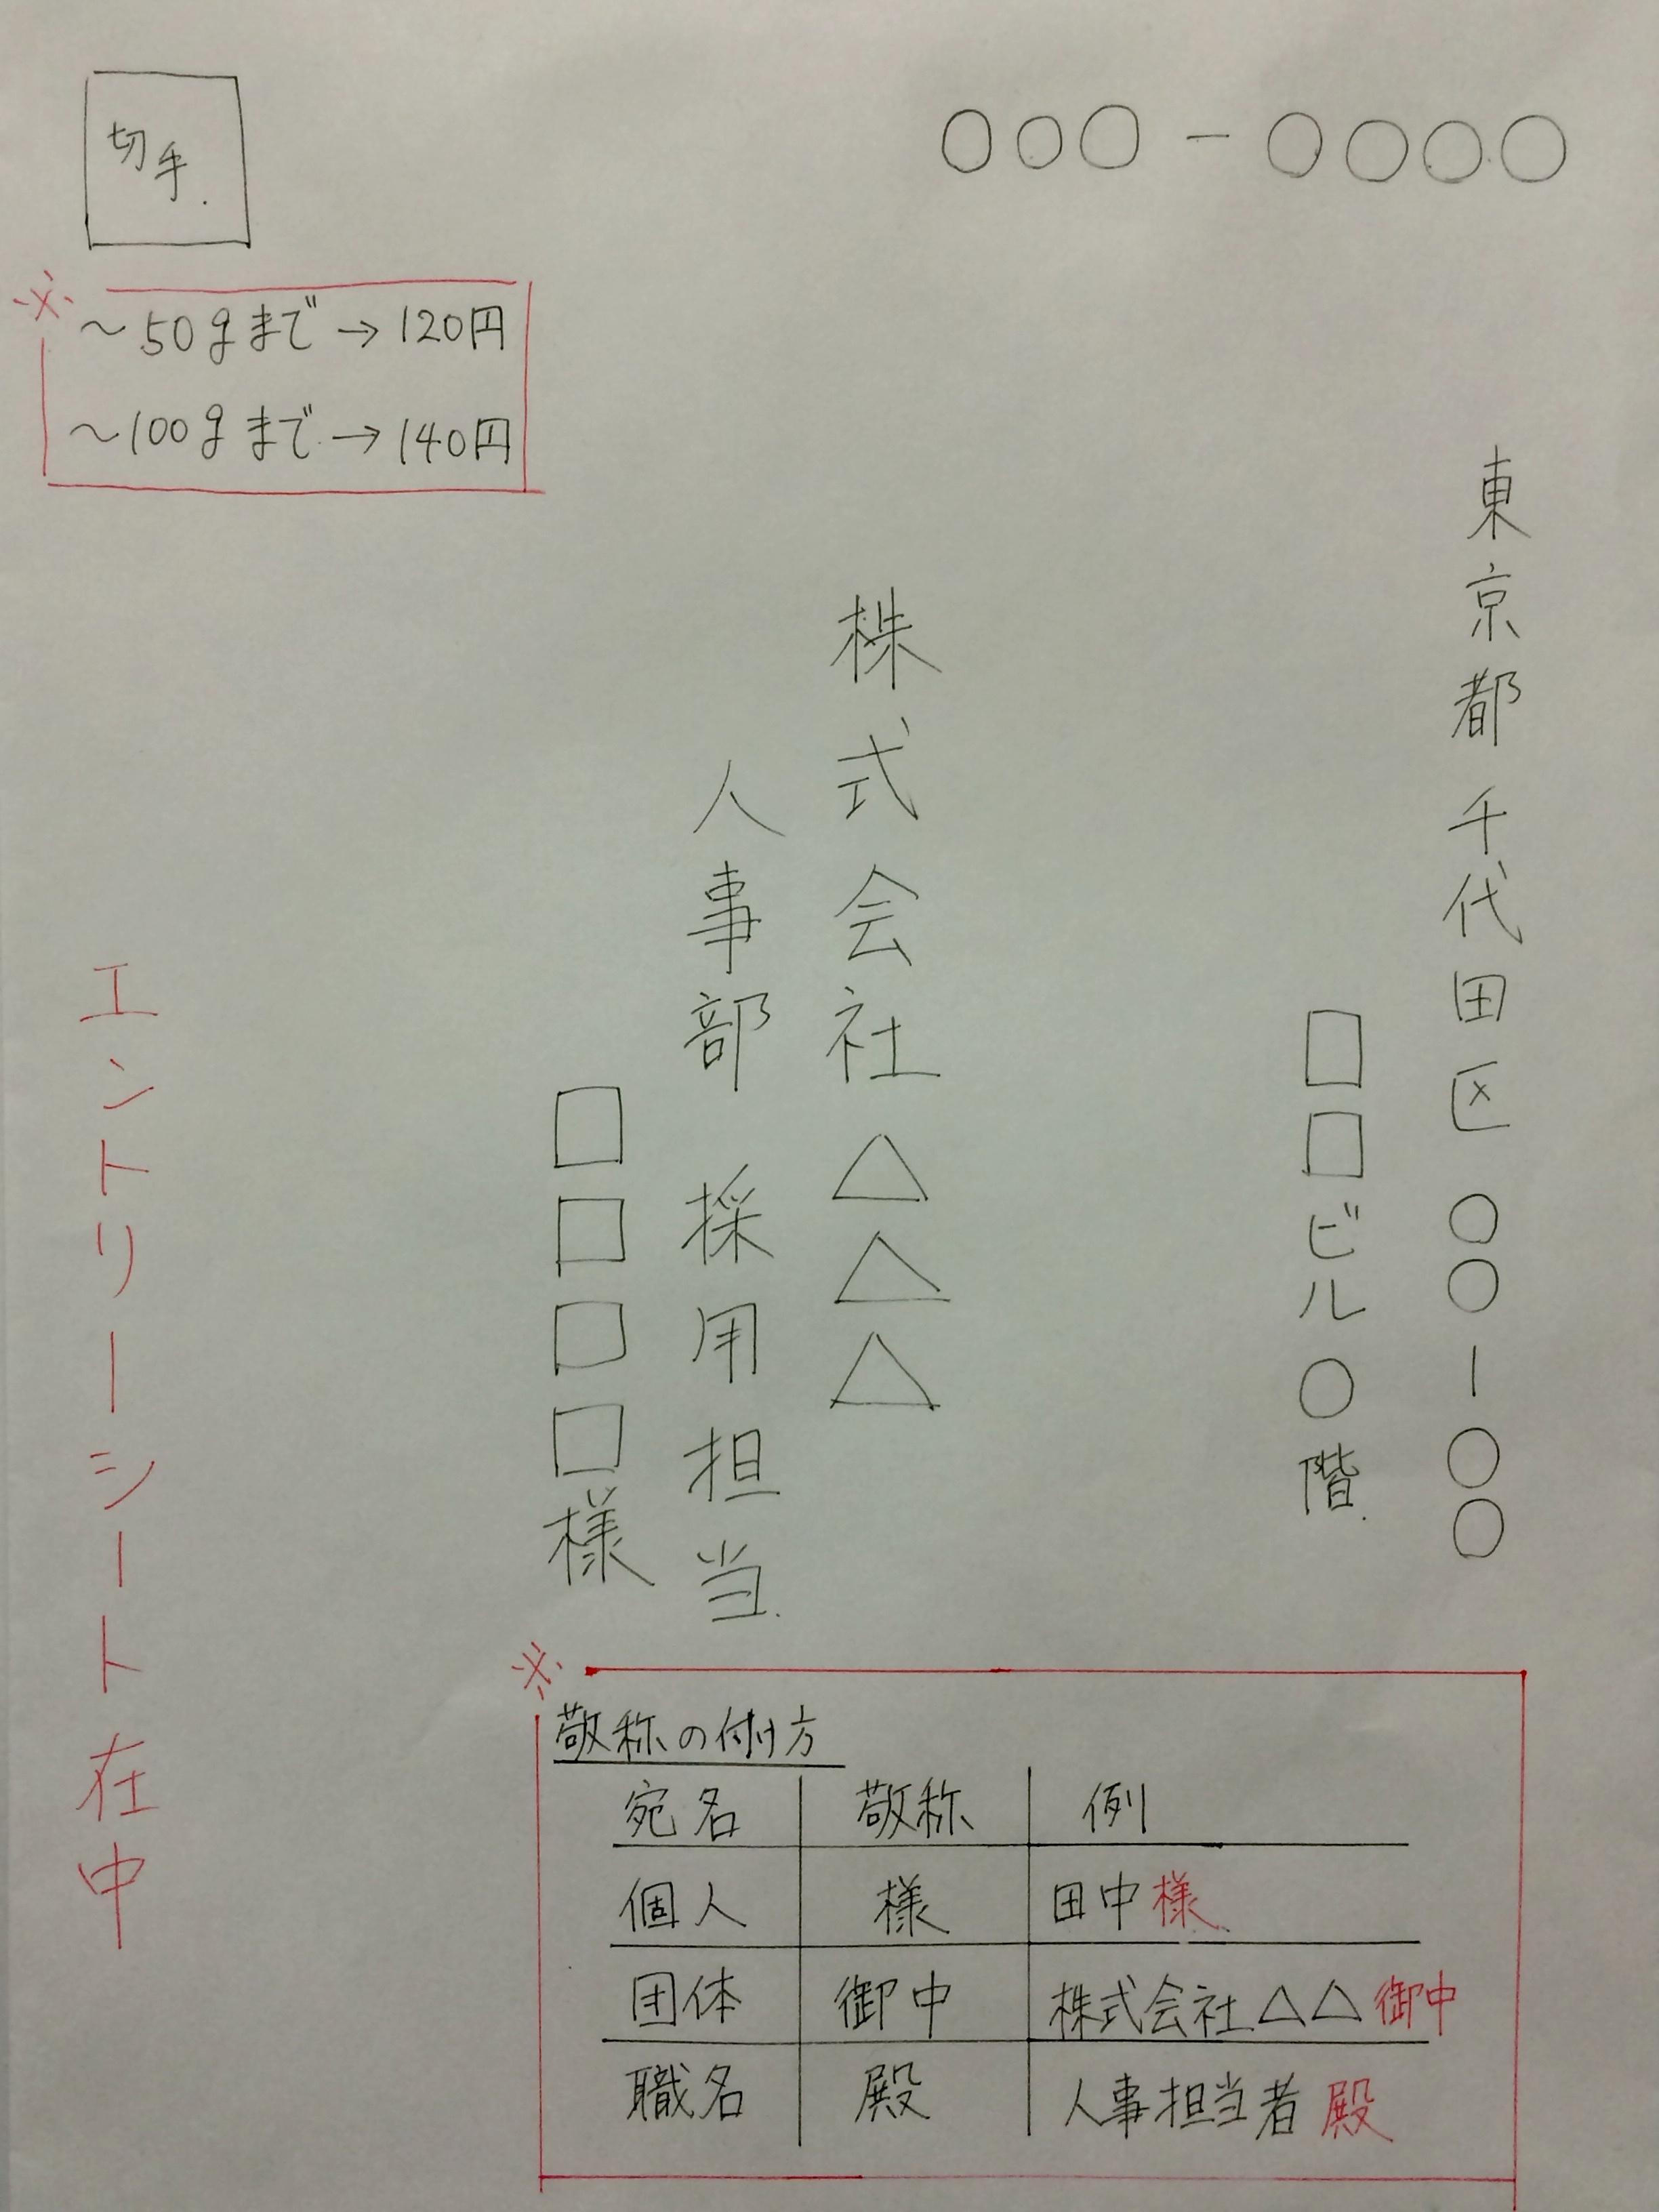 ○○○-○○○○
切手
※
~50gまで→120円
~100gまで→140円
東京都千代田区○○-○○
□□ビル○階
株式会社△△△
人事部 採用担当
□□□□様
エントリーシート在中
※
敬称の付け方
宛名 敬称 例
個人 様 田中様
団体 御中 株式会社△△御中
職名 殿 人事担当者殿